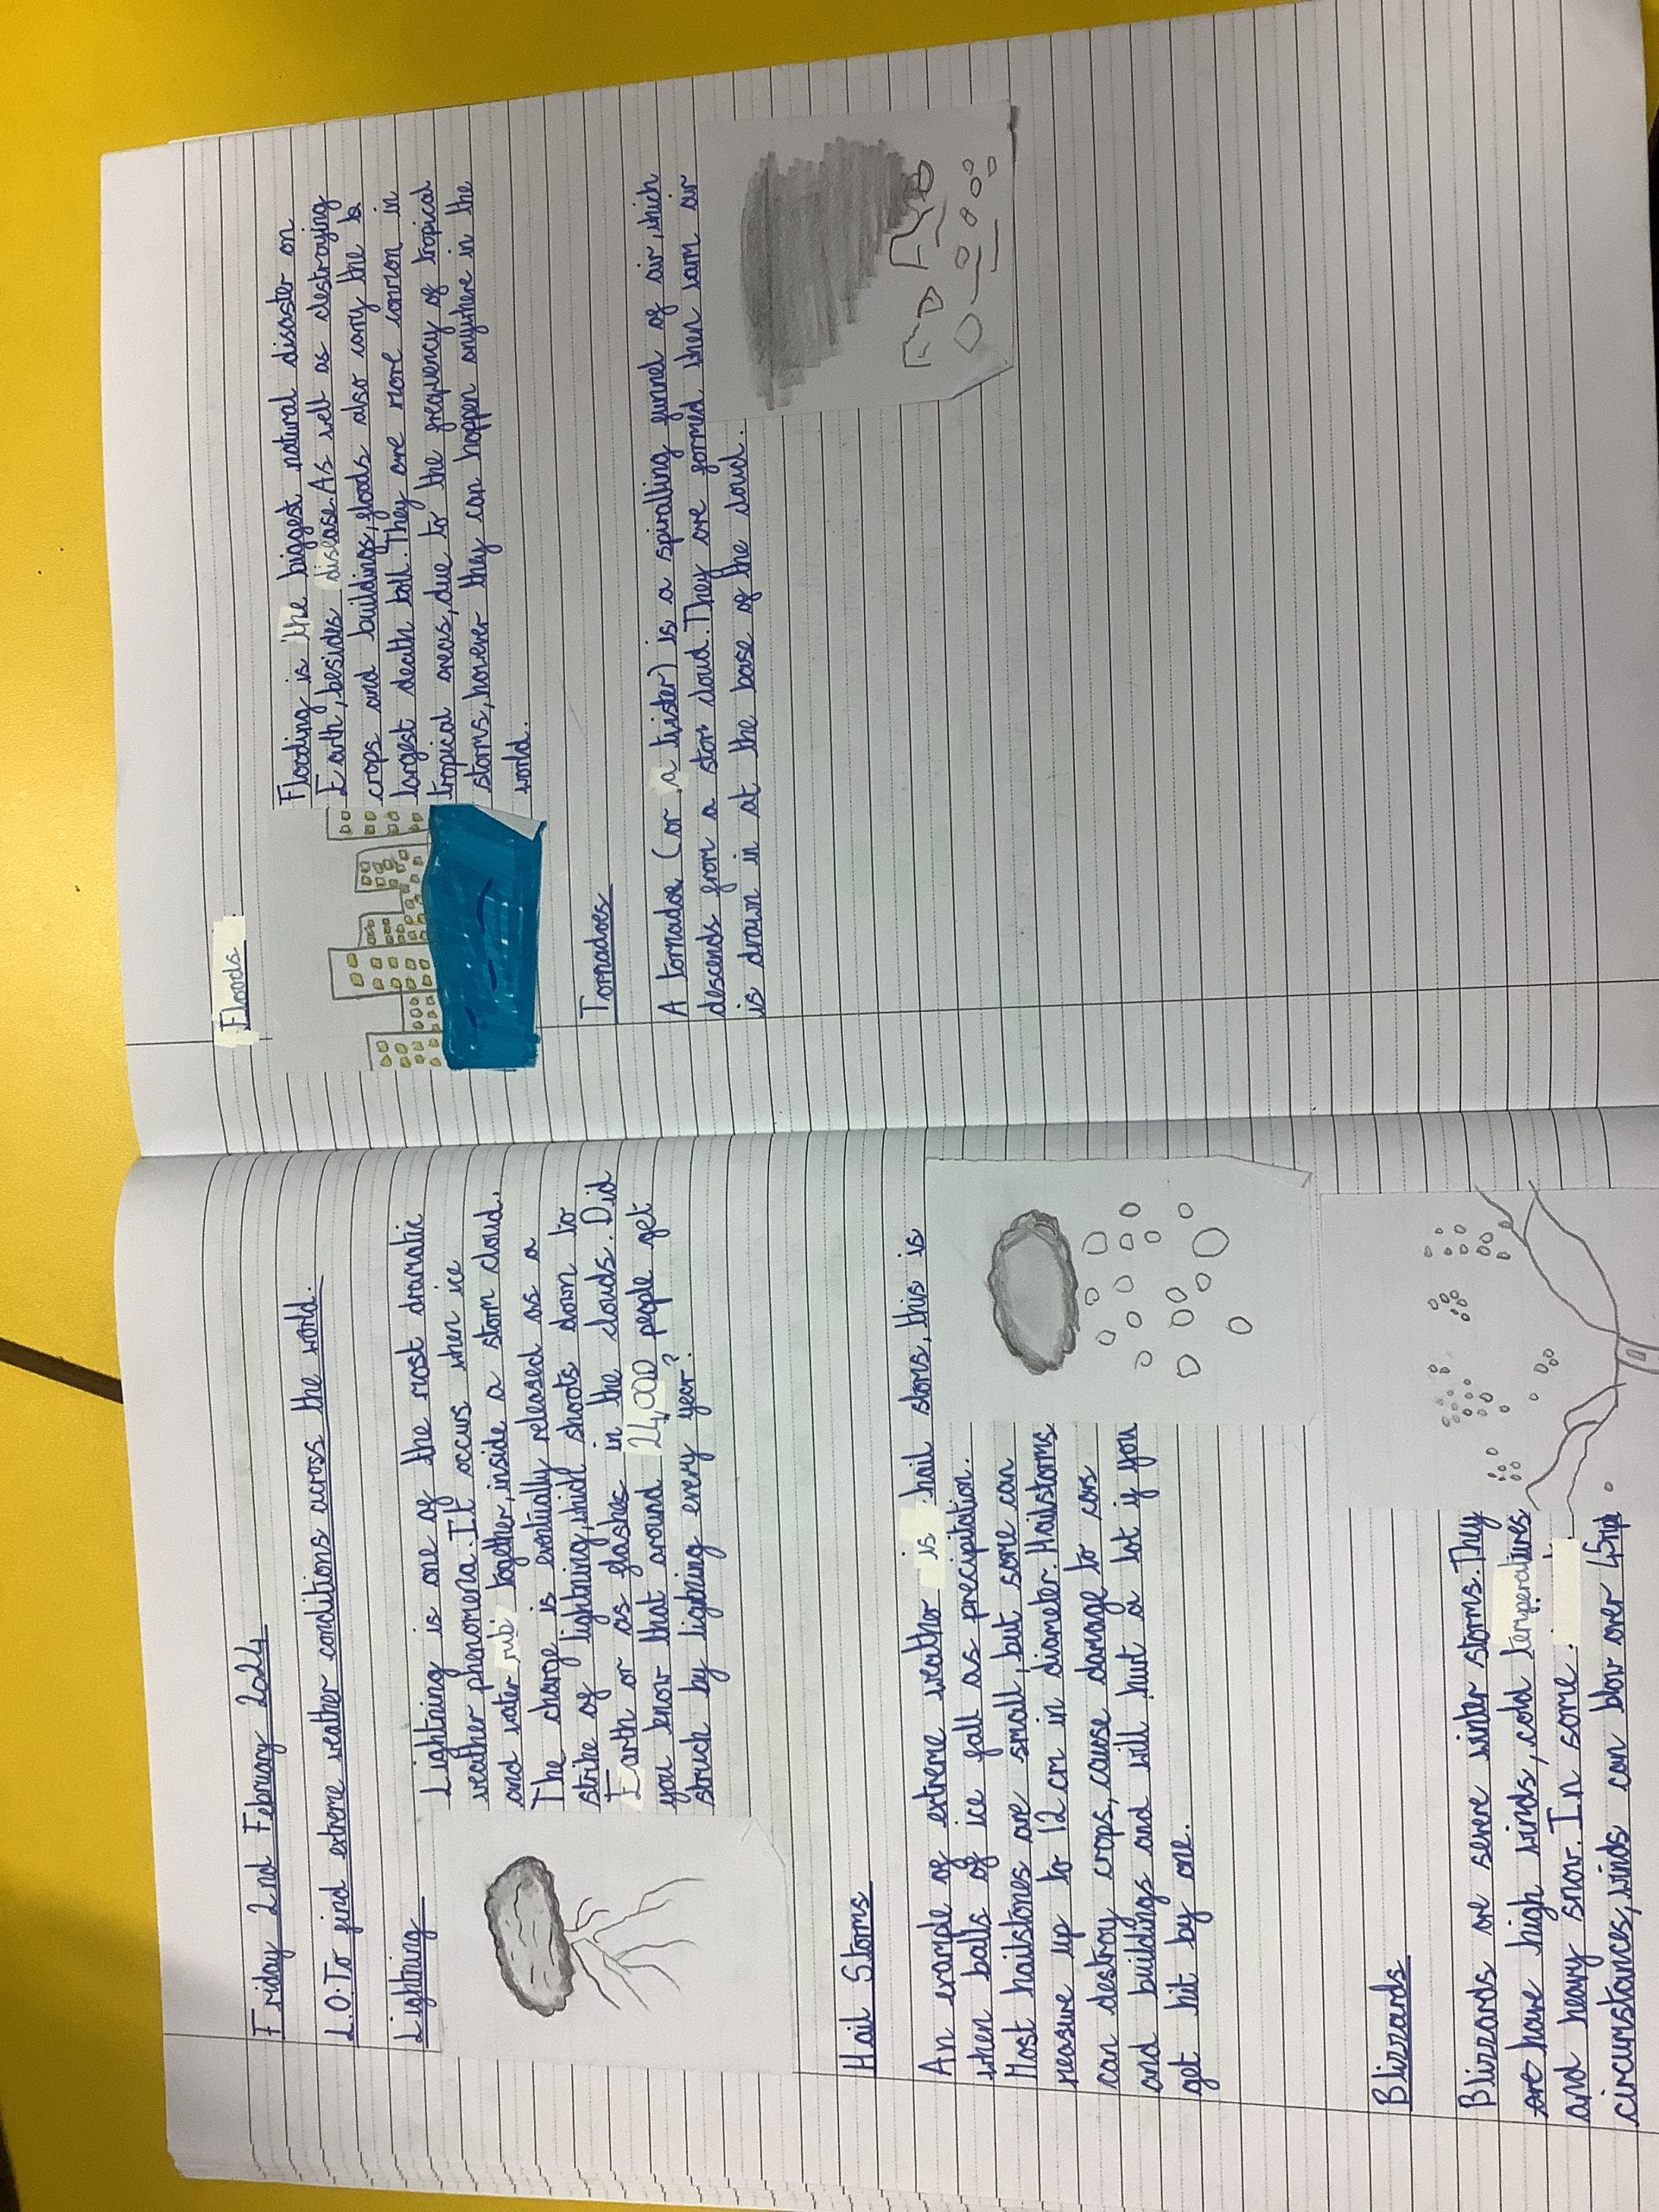 Friday 2nd February 2024
L.O: To find extreme weather conditions across the world.
Lightning
Lightning is one of the most dramatic
weather phenomena. It occurs when ice
and water rub together, inside a storm cloud.
The charge is eventually released as a
strike of lightning, which shoots down to
Earth or as flashes in the clouds. Did
you know that around 24,000 people get
struck by lightning every year?
Hail Storms
An example of extreme weather is hail storms, this is
when balls of ice fall as precipitation.
Most hailstones are small, but some can
measure up to 12cm in diameter. Hailstorms
can destroy crops, cause damage to cars
and buildings and will hurt a lot if you
get hit by one.
Blizzards
Blizzards are severe winter storms. They
are have high winds, cold temperatures
and heavy snow. In some
circumstances, winds can blow over 45mph
Floods
Flooding is the biggest natural disaster on
Earth, besides disease. As well as destroying
crops and buildings, floods also carry the b
largest death toll. They are more common in
tropical areas, due to the frequency of tropical
storms, however they can happen anywhere in the
world.
Tornadoes
A tornadoe (or a twister) is a spiralling funnel of air, which
descends from a storm cloud. They are formed when warm air
is drawn in at the base of the cloud.